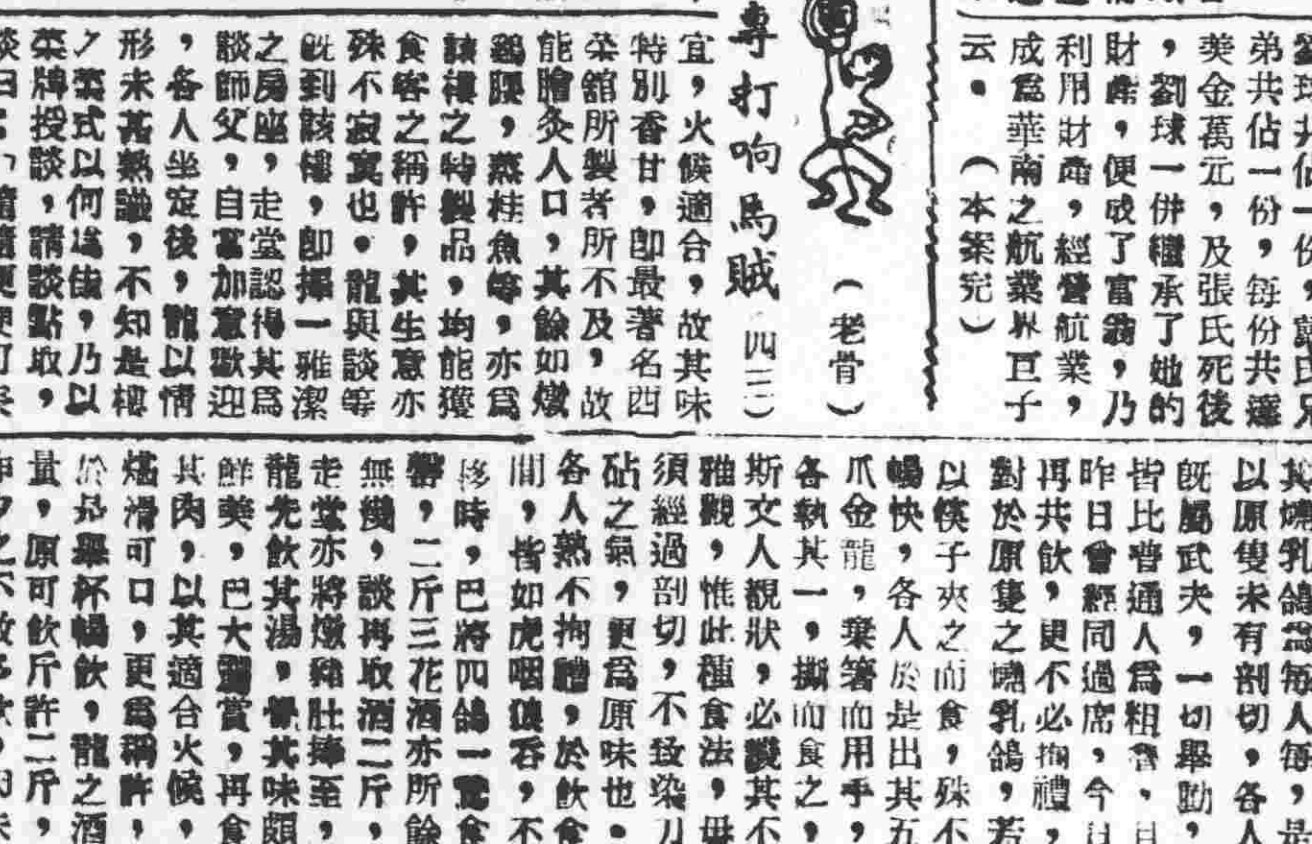 弟共佔一份，每份共達
美金萬元，及張氏死後
，劉球一併繼承了她的
財產，便成了富翁，乃
利用財產，經營航業，
成爲華南之航業界巨子
云。（本案完）
（老骨）
專打响馬賊 四三）
宜，火候適合，故其味
特別香甘，即最著名西
菜舘所製者所不及，故
能膾灸人口，其餘如燉
鷄腰，蒸桂魚等，亦爲
該樓之特製品，均能獲
食客之稱許，其生意亦
殊不寂寞也。龍與談等
旣到該樓，即擇一雅潔
之房座，走堂認得其爲
談師父，自當加意歡迎
，各人坐定後，龍以情
形未甚熟識，不知是樓
菜式以何爲佳，乃以
菜牌授談，請談點取，
其燒乳鴿爲每人每，是
以原隻未有剖切，各人
旣屬武夫，一切舉動，
皆比普通人爲粗魯，且
昨日曾經同過席，今日
再共飲，更不必拘禮，
對於原隻之燒乳鴿，若
以筷子夾之而食，殊不
暢快，各人於是出其五
爪金龍，棄箸而用手，
各執其一，撕而食之，
斯文人觀狀，必譏其不
雅觀，惟此種食法，毋
須經過剖切，不致染刀
砧之氣，更爲原味也。
各人熟不拘禮，於飲食
間，皆如虎咽狼吞，不
移時，巴將四鴿一霓食
罄，二斤三花酒亦所餘
無幾，談再取酒二斤，
走堂亦將燉豬肚捧至，
龍先飲其湯，覺其味頗
鮮美，巴大讚賞，再食
其肉，以其適合火候，
爐滑可口，更爲稱許，
於是舉杯暢飲，龍之酒
量，原可飲斤許二斤，